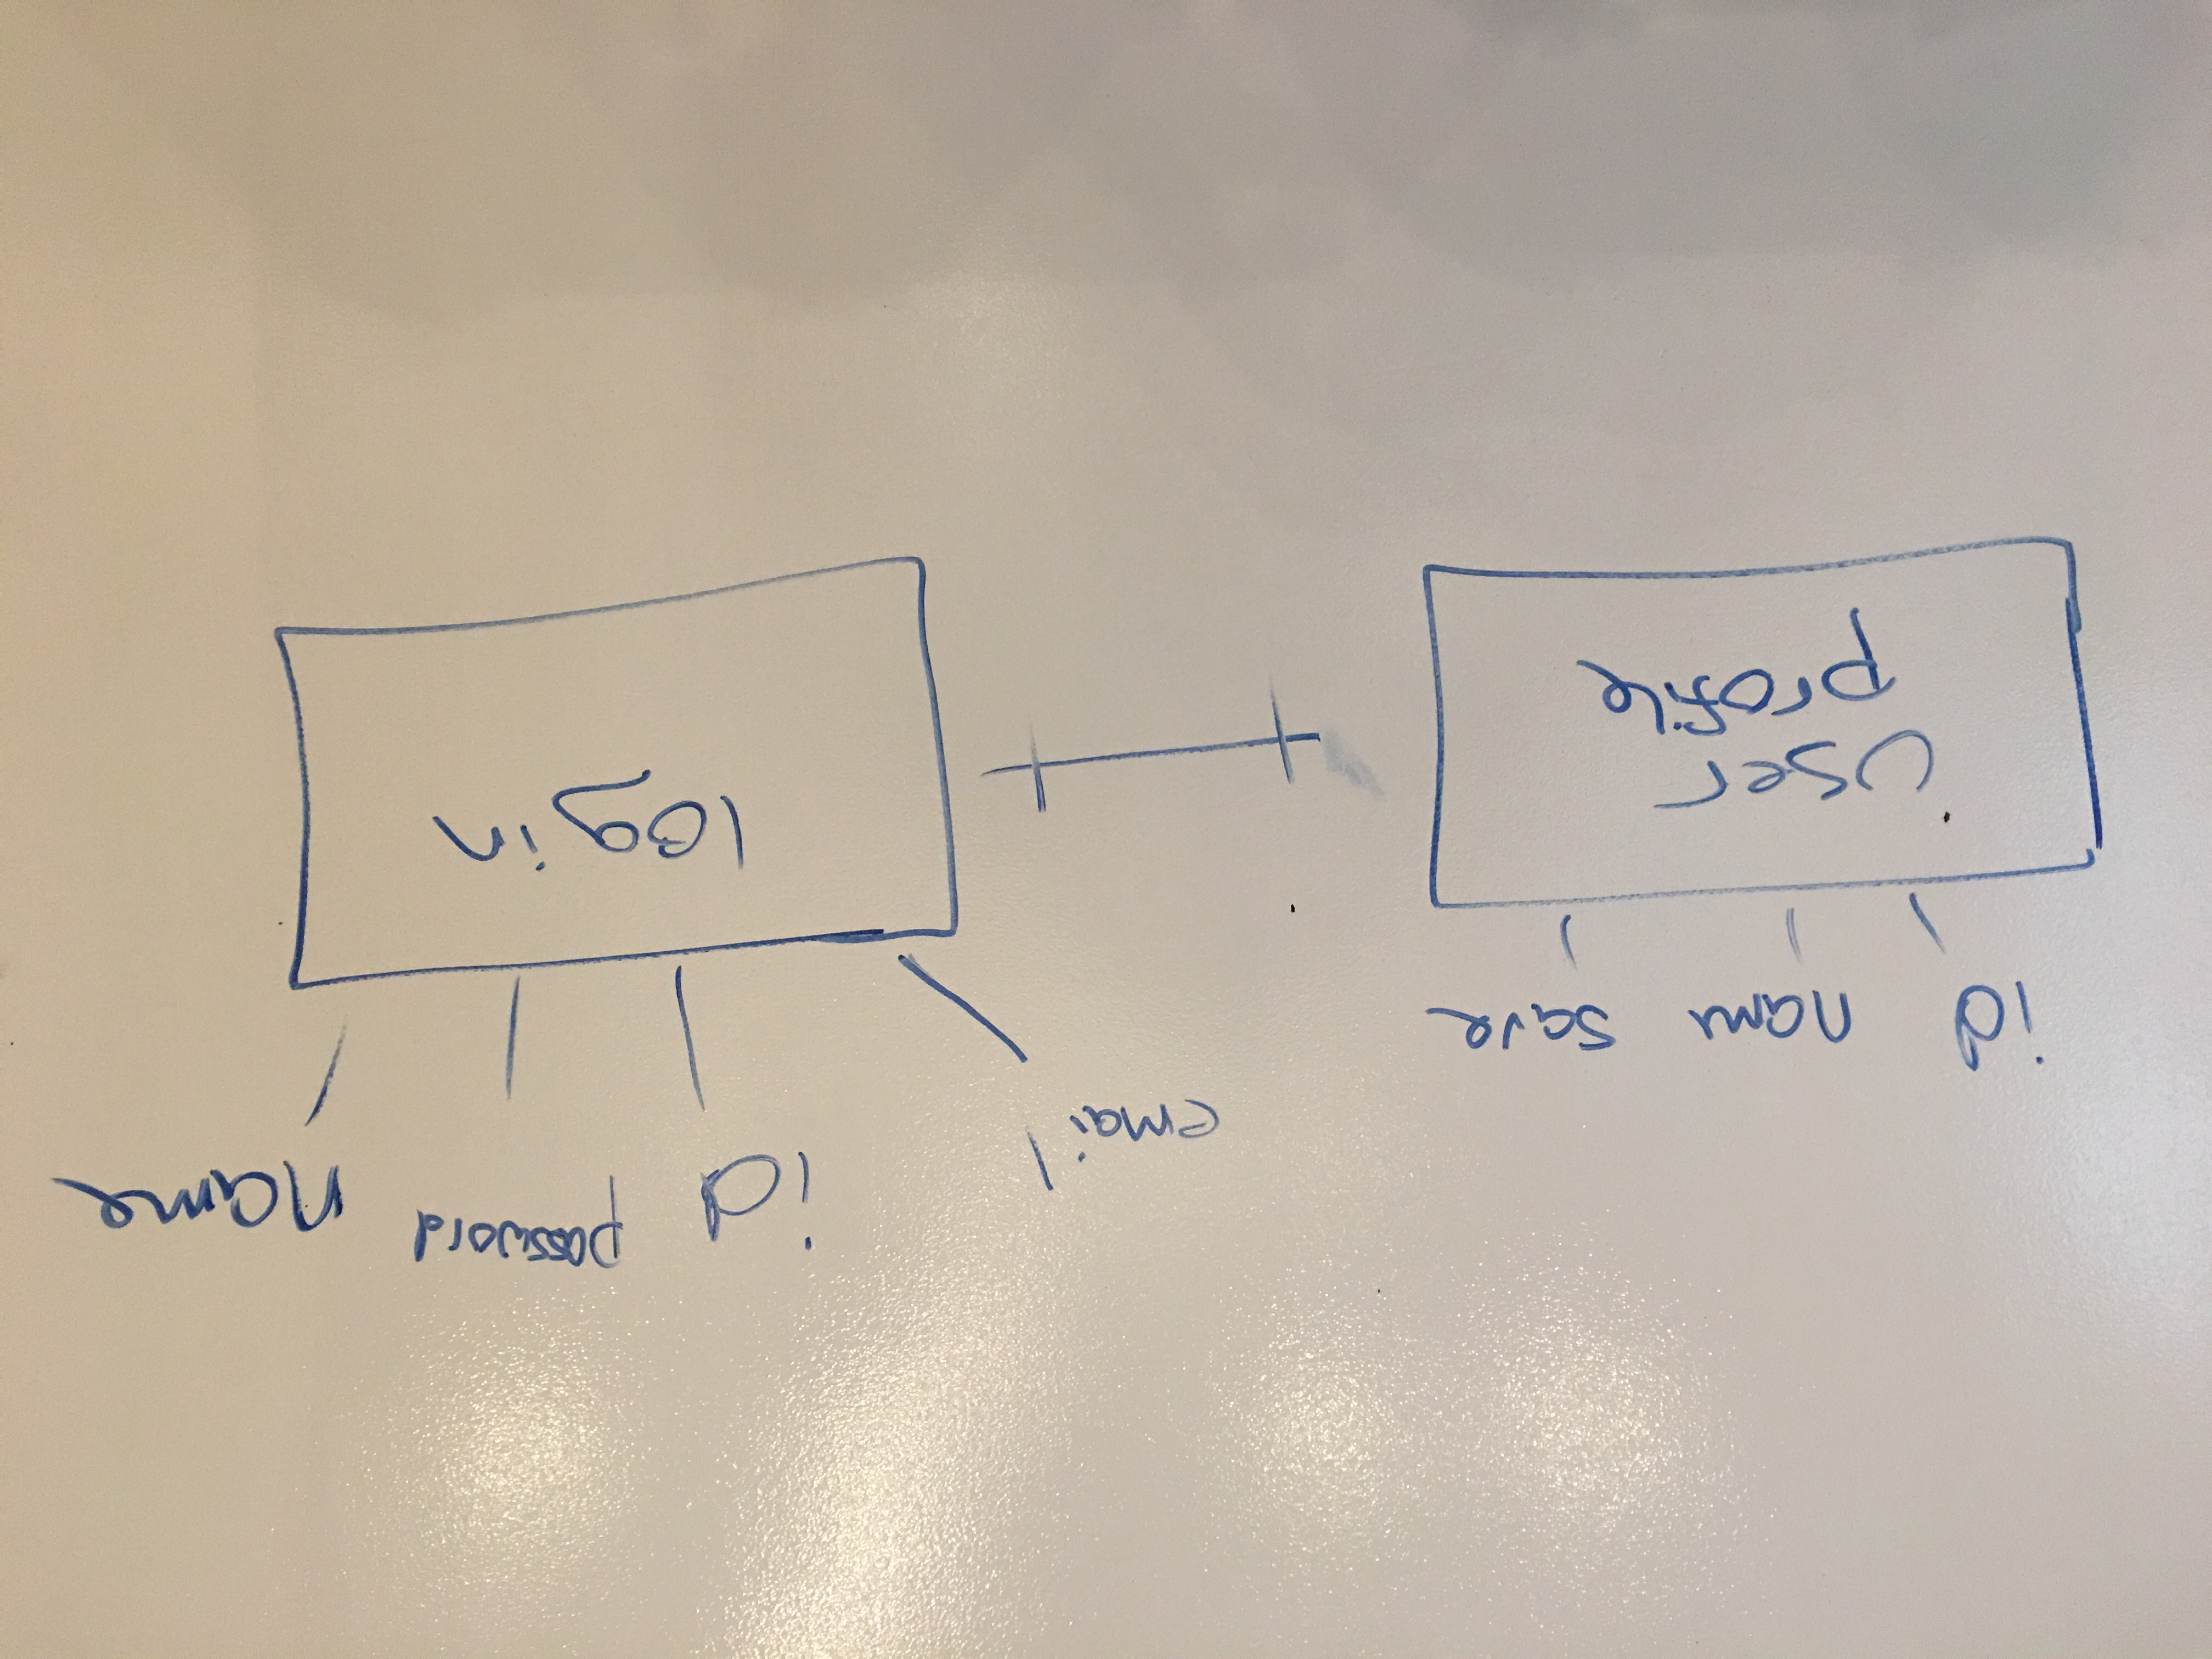 id name save
user
profile
email
id password name
login